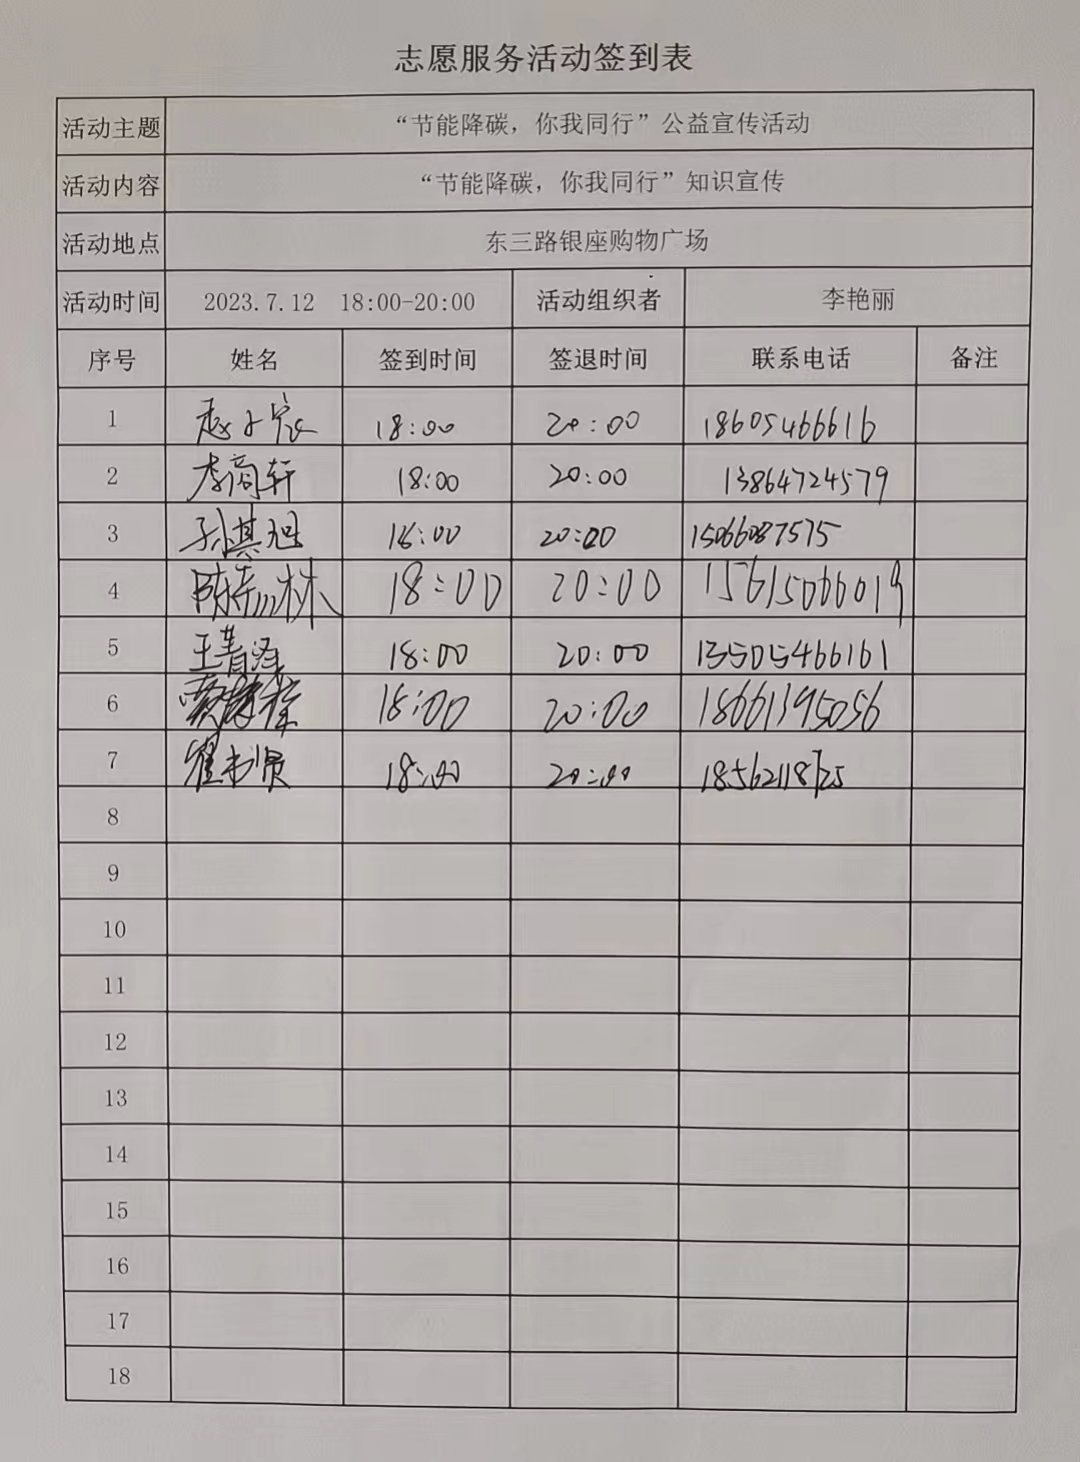 志愿服务活动签到表
活动主题 “节能降碳，你我同行”公益宣传活动
活动内容 “节能降碳，你我同行”知识宣传
活动地点 东三路银座购物广场
活动时间 2023.7.12 18:00-20:00 活动组织者 李艳丽
序号 姓名 签到时间 签退时间 联系电话 备注
1 18:00 20:00 18605466616
2 李商轩 18:00 20:00 13864724579
3 孙其旭 18:00 20:00 15066087575
4 18:00 20:00 15615066019
5 王菁泽 18:00 20:00 13505466161
6 18:00 20:00 18661395056
7 翟书贤 18:00 20:00 18562118725
8
9
10
11
12
13
14
15
16
17
18